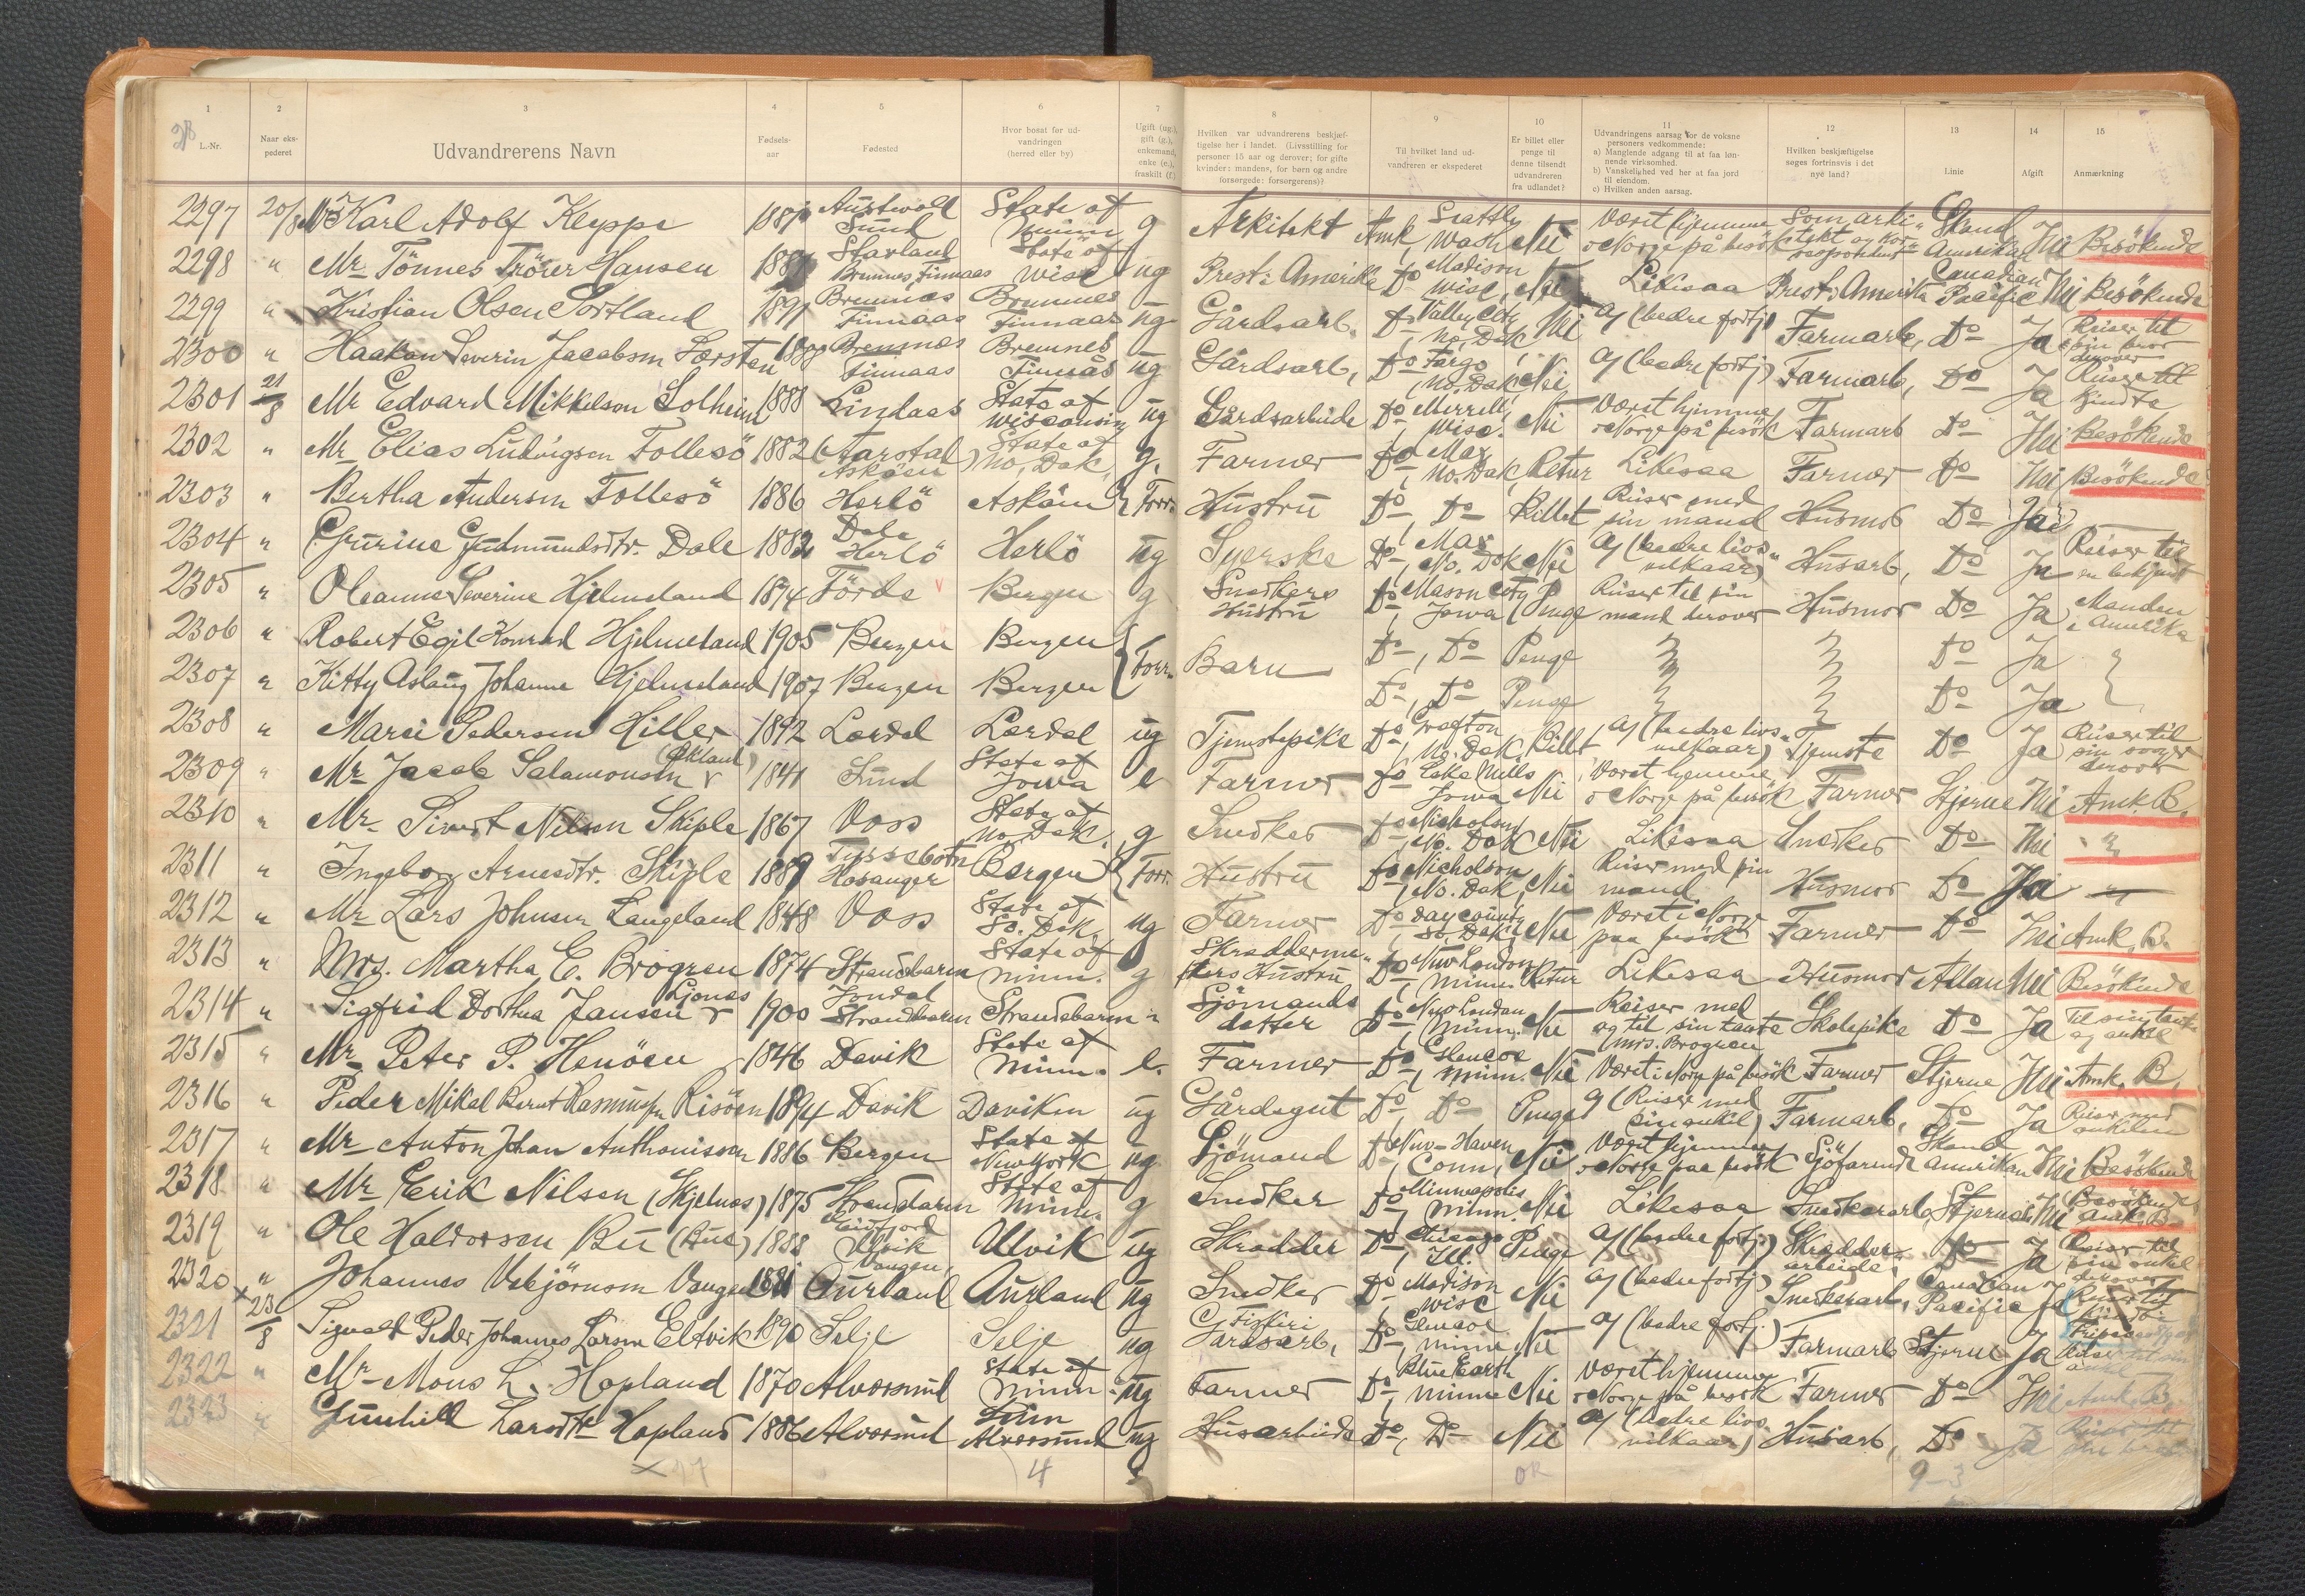 1
2
3
4
5
6
7
8
9
10
11
12
13
14
15
L.-Nr.
Naar eks-
pederet
Udvandrerens Navn
Fødsels-
aar
Fødested
Hvor bosat før ud-
vandringen
(herred eller by)
Ugift (ug.),
gift (g.),
enkemand,
enke (e.),
fraskilt (f.)
Hvilken var udvandrerens beskjæf-
tigelse her i landet. (Livsstilling for
personer 15 aar og derover; for gifte
kvinder: mandens, for børn og andre
forsørgede: forsørgerens)?
Til hvilket land ud-
vandreren er ekspederet
Er billet eller
penge til
denne tilsendt
udvandreren
fra udlandet?
Udvandringens aarsag for de voksne
personers vedkommende:
a) Manglende adgang til at faa løn-
nende virksomhed.
b) Vanskelighed ved her at faa jord
til eiendom.
c) Hvilken anden aarsag.
Hvilken beskjæftigelse
søges fortrinsvis i det
nye land?
Linie
Afgift
Anmærkning
2297 20/8 Mr Karl Adolf Kleppe Austevold Sund State of Minn g Arkitekt Amk, Seattle Wash Nei Været hjemme i Norge på besök Som arki- tekt Skand Amerikan Nei Besökende
2298 " Mr Tönnes Hansen Bremnes Finnaas State of Wisc ug Prest i Amerika Do Madison Wisc, Nei Likesaa Prest i Amerika Canadian Pacific Nei Besökende
2299 " Kristian Olsen Sortland 1891 Bremnes Finnaas Bremnes Finnaas ug Gårdsarb. Do Valley City No. Dak Nei a) (bedre fortj) Farmarb, Do Ja Reiser til sin bror derover
2300 " Haakon Severin Jacobsen Sørsten 1888 Bremnes Finnaas Bremnes Finnås ug Gårdsarb, Do Fargo No. Dak Nei a) (bedre fortj) Farmarb, Do Ja Reiser til kjendte
2301 21/8 Mr Edvard Mikkelson Solheim 1888 Lindaas State of Wisconsin ug Gårdsarbeide Do Merrell Wisc. Nei Været hjemme i Norge på besök Farmarb Do Nei Besökende
2302 " Mr Elias Ludvigsen Follesö 1882 Asköen State of No, Dak, g. Farmer Do Max No. Dak, Retur Likesaa Farmer Do Nei Besökende
2303 " Bertha Andersen Follesö 1886 Herlö Asköen Forr. Hustru Do, Do Billet Reiser med sin mand Husmor Do Ja
2304 " Gurine Gudmundsdtr. Dale 1882 Dale Herlö Herlö ug Syerske Do, Max No. Dak Nei a) (bedre livs- vilkaar) Husarb, Do Ja Reiser til en bekjendt
2305 " Oleanna Severine Hjelmeland 1874 Förde Bergen g Snedkers Hustru Do, Mason City Jowa Penge Reiser til sin mand derover Husmor Do Ja Manden i Amerika
2306 " Robert Egil Konrad Hjelmeland 1905 Bergen Bergen Forr. Barn Do, Do Penge " " Do Ja "
2307 " Kitty Aslaug Johanne Hjelmeland 1907 Bergen Bergen Do, Do Penge " " Do Ja
2308 " Marie Pedersen Hiller 1892 Lærdal Lærdal ug Tjenestepike Do, Grafton No. Dak, Billet a) (bedre livs- vilkaar) Tjeneste Do Ja Reiser til sin derover
2309 " Mr Jacob Salamonsen (Økland) 1841 Sund State of Jowa e Farmer Do Lake Mills Jowa Nei Været hjemme i Norge på besök Farmer Stjerne Nei Amk. B.
2310 " Mr Sivert Nilsen Skiple 1867 Voss State of No. Dak. g Snedker Do Nicholson No. Dak Nei Likesaa Snedker Do Nei "
2311 " Ingeborg Arnesdtr. Skiple 1889 Hosanger Bergen Forr. Hustru Do Nicholson No. Dak, Nei Reiser med sin mand Husmor Do Ja "
2312 " Mr Lars Johnsen Langeland 1848 Voss State of So. Dak. ug Farmer Do Day County So. Dak, Nei Været i Norge paa besök Farmer Do Nei Amk. B.
2313 " Mrs. Martha E. Brogren 1874 Strandebarm State of Minn. g Skrædderme- sters Hustru Do New London Minn. Retur Likesaa Husmor Allan Nei Besökende
2314 " Sigfrid Dorthea Jansen Ljones 1900 Jondal Strandebarm Strandebarm " Sjömands datter Do New London Minn. Nei Reiser med og til sin tante (Mrs. Brogren Skolepike Do Ja Til sin tante og onkel
2315 " Mr Peter P. Henöen 1846 Davik State of Minn. e. Farmer Do Glencoe Minn. Nei Været i Norge på besök Farmer Stjerne Nei Amk. B.
2316 " Peder Mikal Bernt Rasmussen Risöen 1894 Davik Daviken ug Gårdsgut Do, Do Penge a (Reiser med sin onkel) Farmarb, Do Ja Reiser med onkelen
2317 " Mr Anton Johan Anthonissen 1886 Bergen State of New York ug. Sjömand Do New-Haven Conn, Nei Været hjemme i Norge paa besök Sjöfarende Skand Amerikan Nei Besökende
2318 " Mr Erik Nilsen (Skjelnes) 1875 Strandebarm State of Minn. g Snedker Do, Minneapolis Minn. Nei Likesaa Snedkerarb, Stjerne Nei Besökende Amk. B.
2319 " Ole Haldorsen Bu (Bue) 1888 Eidfjord Ulvik Ulvik ug Skrædder Do, Chicago Ill. Penge a) (bedre fortj.) Skrædder- arbeide, Do Ja Reiser til sin onkel derover
2320 " Johannes Vebjörnsen Vangen 1881 Vangen, Aurland Aurland ug Snedker Do, Madison Wisc Nei a) (bedre fortj) Snedkerarb, Canadian Pacific Ja
2321 23/8 Sigvald Peder Johannes Larsen Eltvik 1890 Selje Selje ug Fiskeri Gårdsarb, Do, Glencoe Minn Nei a) (bedre fortj.) Farmarb Stjerne Ja
2322 " Mr Mons L. Hopland 1870 Alversund State of Minn. ug Farmer Do, Blue Earth Minn Nei Været hjemme i Norge på besök Farmer Do Nei Amk. B.
2323 " Gunhild Larsdtr Hopland 1886 Alversund Alversund ug Husarbeide Do, Do Nei a) (bedre livs- vilkaar) Husarb, Do Ja Reiser til sin bror
4
OK
9-3